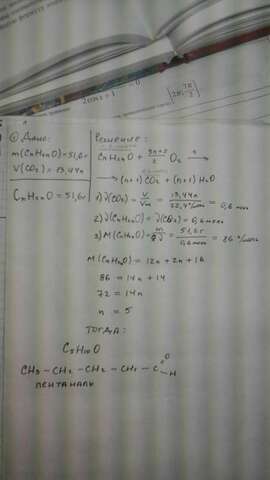 ① Дано:
m(CnH2nO)=51,6г
V(CO2)=13,44л
CnH2nO=51,6г
Решение:
CnH2nO + 3n+2/2 O2 →
→ (n+1) CO2 + (n+1) H2O
1) ν(CO2) = V/Vm = 13,44л/22,4 л/моль = 0,6 моль
2) ν(CnH2nO) = ν(CO2) = 0,6 моль
3) M(CnH2nO) = m/ν = 51,6г/0,6 моль = 86 г/моль
M(CnH2nO) = 12n + 2n + 16
86 = 14n + 14
72 = 14n
n = 5
ТОГДА:
C5H10O
CH3 – CH2 – CH2 – CH2 – C O H
ПЕНТАНАЛЬ